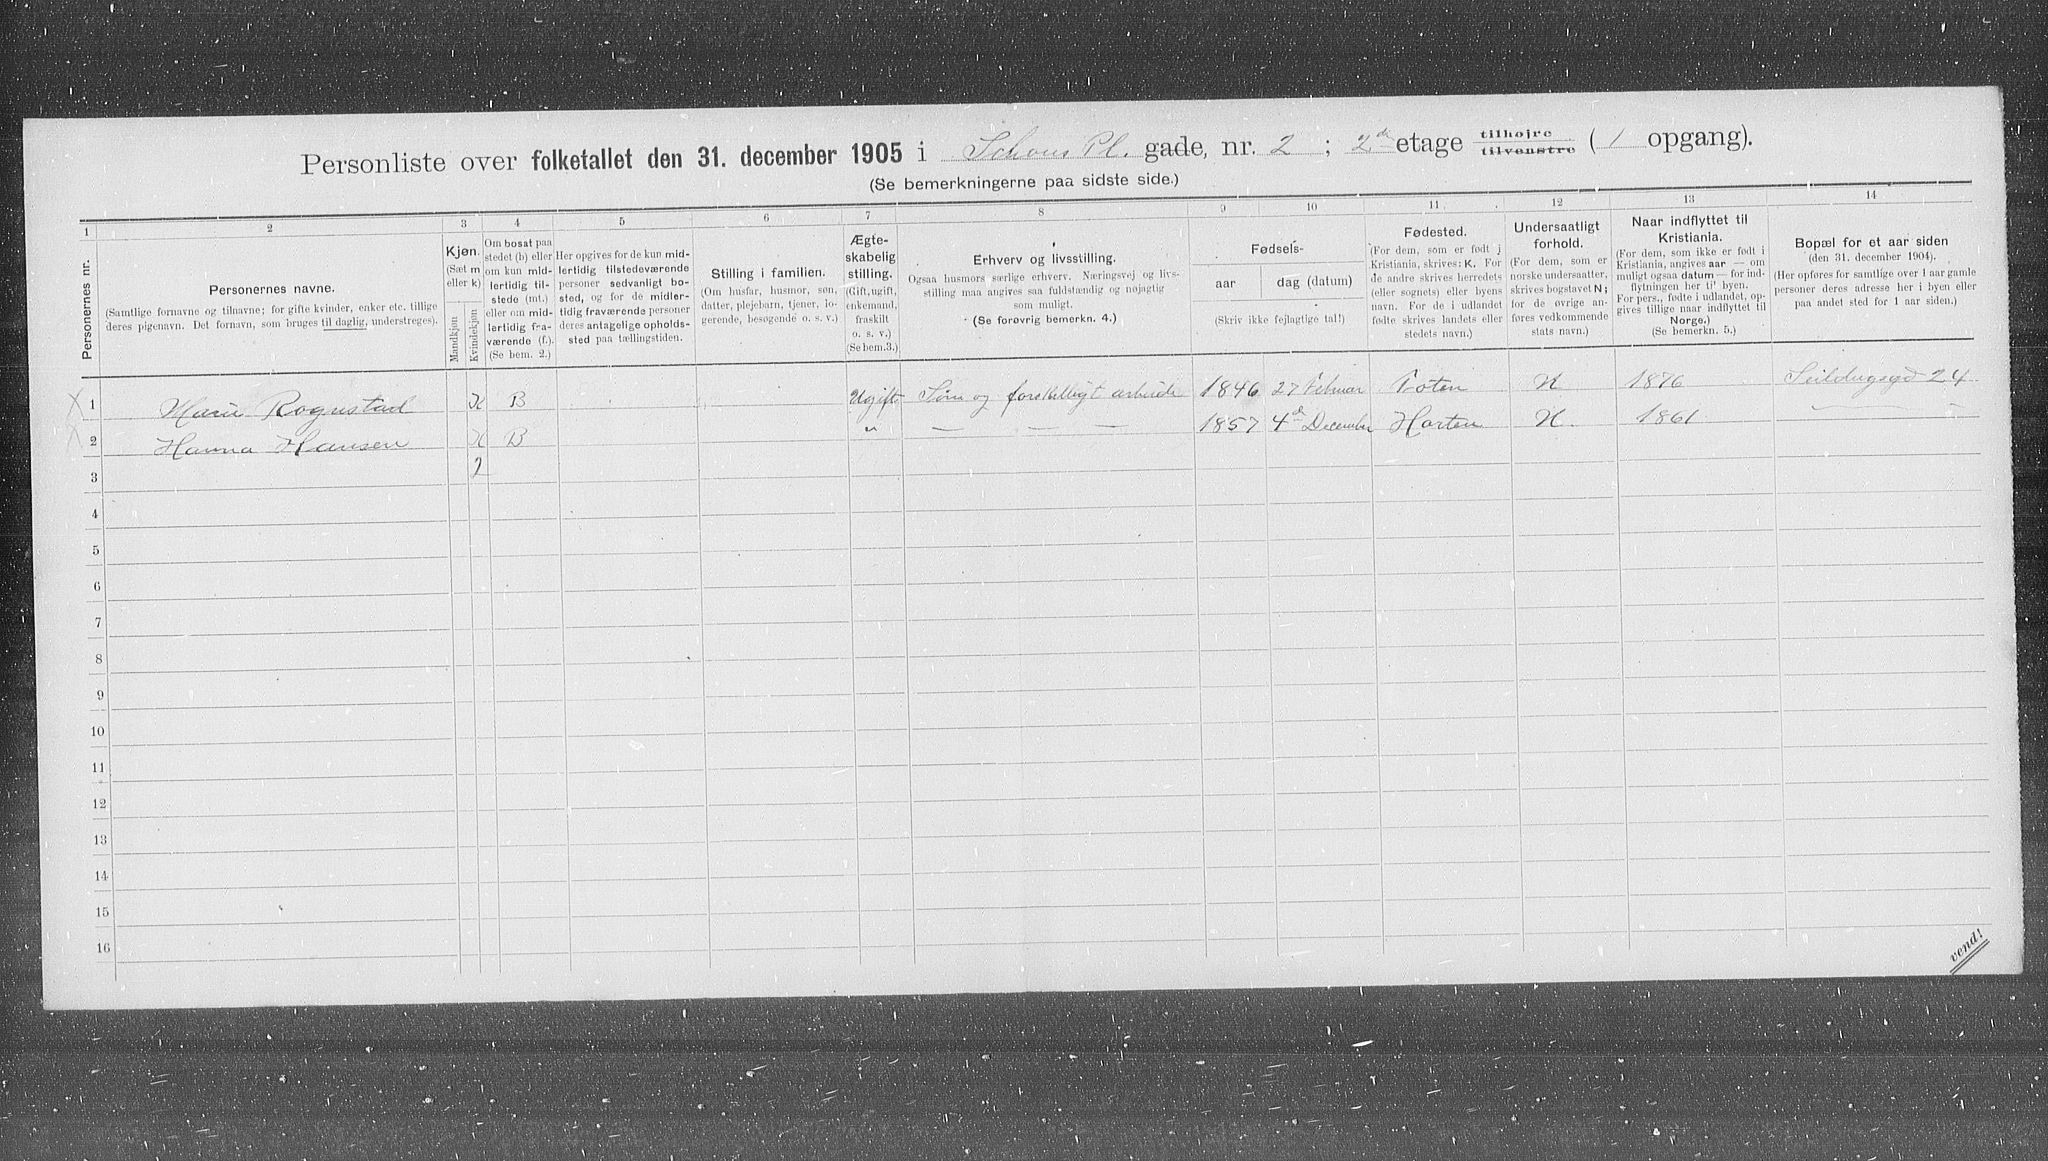 Personliste over folketallet den 31. december 1905 i Schous Pl. gade, nr. 2 ; 2de etage tilhøjre tilvenstre ( 1 opgang).
(Se bemerkningerne paa sidste side.)
1 2 3 4 5 6 7 8 9 10 11 12 13 14
Personernes nr.
Personernes navne.
(Samtlige fornavne og tilnavne; for gifte kvinder, enker etc. tillige
deres pigenavn. Det fornavn, som bruges til daglig, understreges).
Kjøn.
(Sæt m
eller k)
Mandkjøn
Kvindekjøn
Om bosat paa
stedet (b) eller
om kun mid-
lertidig til-
stede (mt.)
eller om mid-
lertidig fra-
værende (f.).
(Se bem. 2.)
Her opgives for de kun mid-
lertidig tilstedeværende
personer sedvanlig bo-
sted, og for de midler-
tidig fraværende personer
deres antagelige opholds-
sted paa tællingstiden.
Stilling i familien.
(Om husfar, husmor, søn,
datter, plejebarn, tjener, lo-
gerende, besøgende o. s. v.)
Ægte-
skabelig
stilling.
(Gift, ugift,
enkemand,
fraskilt
o. s. v.)
(Se bem.3.)
Erhverv og livsstilling.
Ogsaa husmors særlige erhverv. Næringsvej og livs-
stilling maa angives saa fuldstændig og nøjagtig
som muligt.
(Se forøvrig bemerkn. 4.)
Fødsels-
aar
dag (datum)
(Skriv ikke fejlagtige tal!)
Fødested.
(For dem, som er født i
Kristiania, skrives: K. For
de andre skrives herredets
(eller sognets) eller byens
navn. For de i udlandet
fødte skrives landets eller
stedets navn.)
Undersaatligt
forhold.
(For dem, som er
norske undersaatter,
skrives bogstavet N;
for de øvrige an-
føres vedkommende
stats navn.)
Naar indflyttet til
Kristiania.
(For dem, som ikke er født i
Kristiania, angives aar — om
muligt ogsaa datum — for ind-
flytningen her til byen.
For pers., fødte i udlandet, op-
gives tillige naar indflyttet til
Norge.)
(Se bemerkn. 5.)
Bopæl for et aar siden
(den 31. december 1904).
(Her opføres for samtlige over 1 aar gamle
personer deres adresse her i byen eller
paa andet sted for 1 aar siden.)
X 1 Marie Rognstad K B Ugift Søm og forskjelligt arbeide 1846 27 Februar Toten N 1876 Seildugsgd 24
X 2 Hanna Hansen K B " — — — 1857 4de December Horten N. 1861 — —
3 2
4
5
6
7
8
9
10
11
12
13
14
15
16
vend!